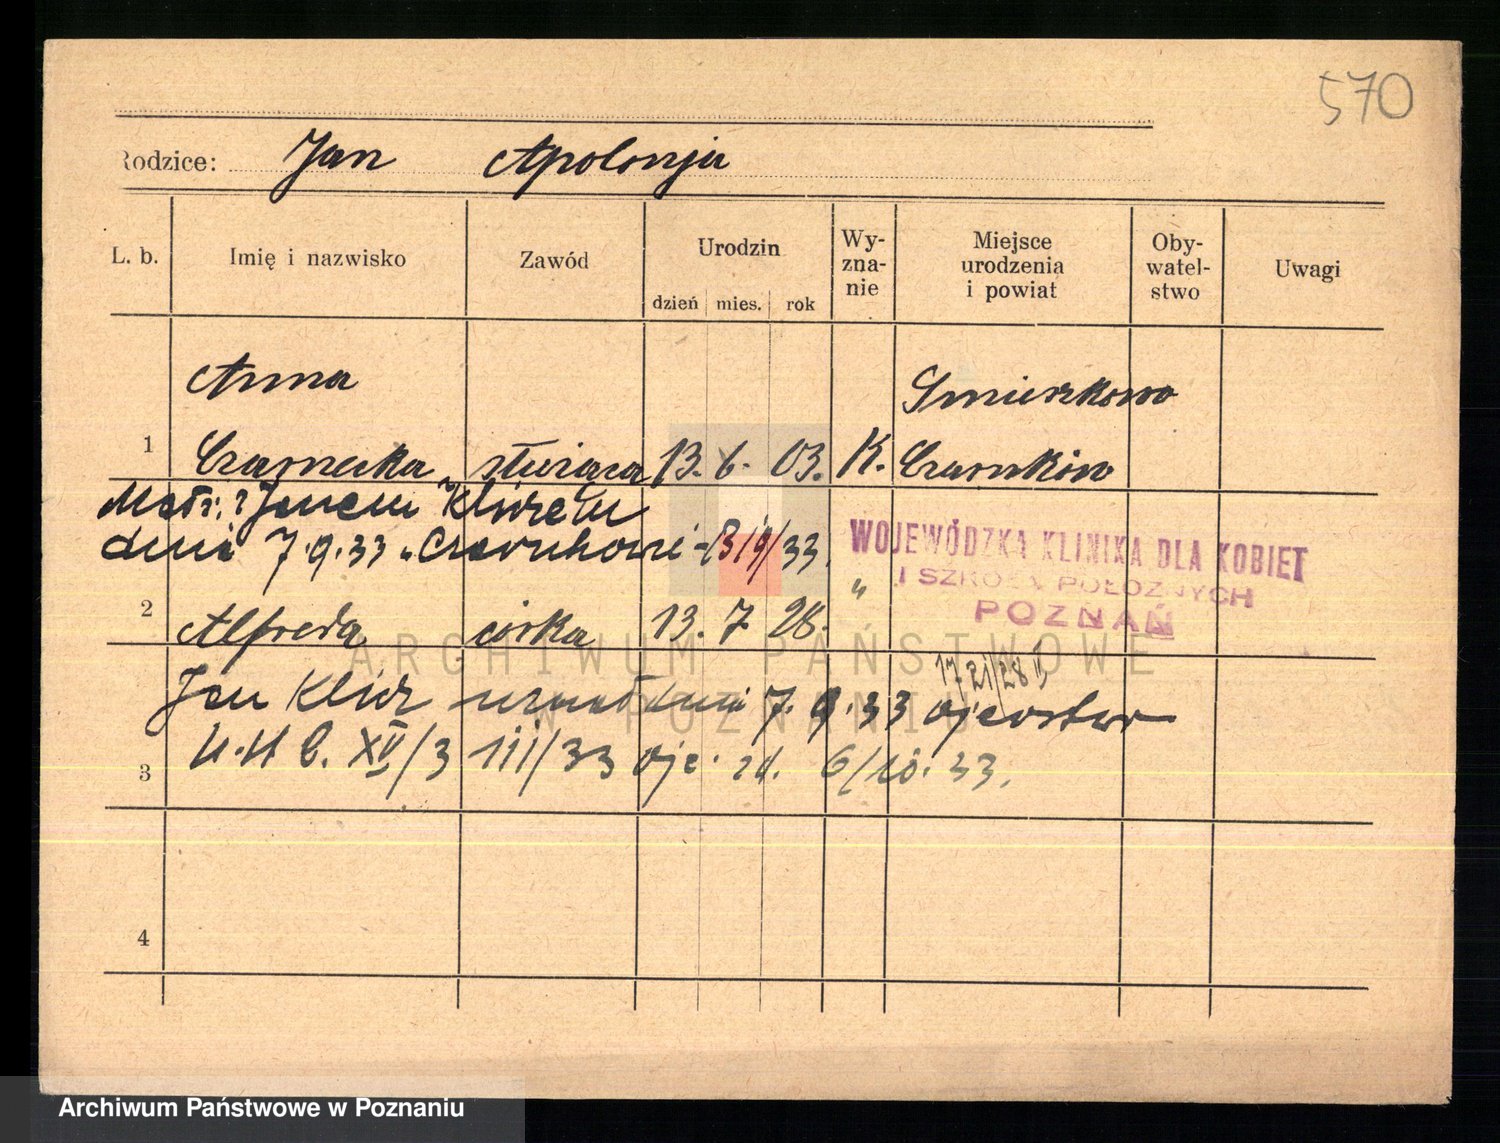 570
Rodzice: Jan Apolonja
L. b. Imię i nazwisko Zawód Urodzin Wy-zna-nie Miejsce urodzenia i powiat Oby-watel-stwo Uwagi
dzień mies. rok
Anna Śmieszkowo
1 Czarnecka służąca 13. 6. 03. K. Czarnków
Małż. z Janem Klicze
dnia 7.9.33 w Czarnkowie B/9/33.
WOJEWÓDZKA KLINIKA DLA KOBIET
I SZKOŁA POŁOŻNYCH
POZNAŃ
2 Alfreda córka 13. 7. 28. "
ARCHIWUM PAŃSTWOWE
W POZNANIU
Jan Klicz uznał dnia 7. 9. 33 ojcostwo
3 XV/3 111/33 6/10. 33.
4
Archiwum Państwowe w Poznaniu